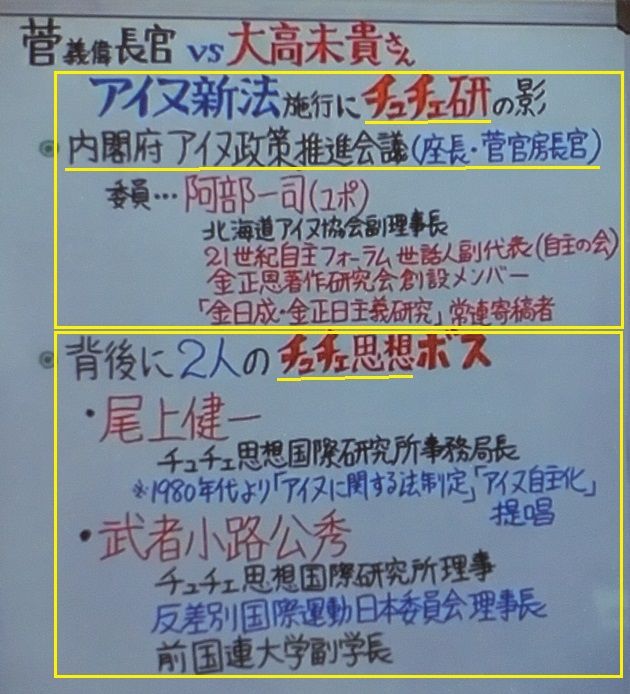 菅義偉長官 vs 大高未貴さん
アイヌ新法施行にチュチェ研の影
内閣府 アイヌ政策推進会議(座長・菅官房長官)
委員…阿部一司(ユポ)
北海道アイヌ協会副理事長
21世紀自主フォーラム世話人副代表(自主の会)
金正恩著作研究会創設メンバー
「金日成・金正日主義研究」常連寄稿者
背後に2人のチュチェ思想ボス
・尾上健一
チュチェ思想国際研究所事務局長
※1980年代より「アイヌに関する法制定」「アイヌ自主化」
提唱
・武者小路公秀
チュチェ思想国際研究所理事
反差別国際運動日本委員会理事長
前国連大学副学長